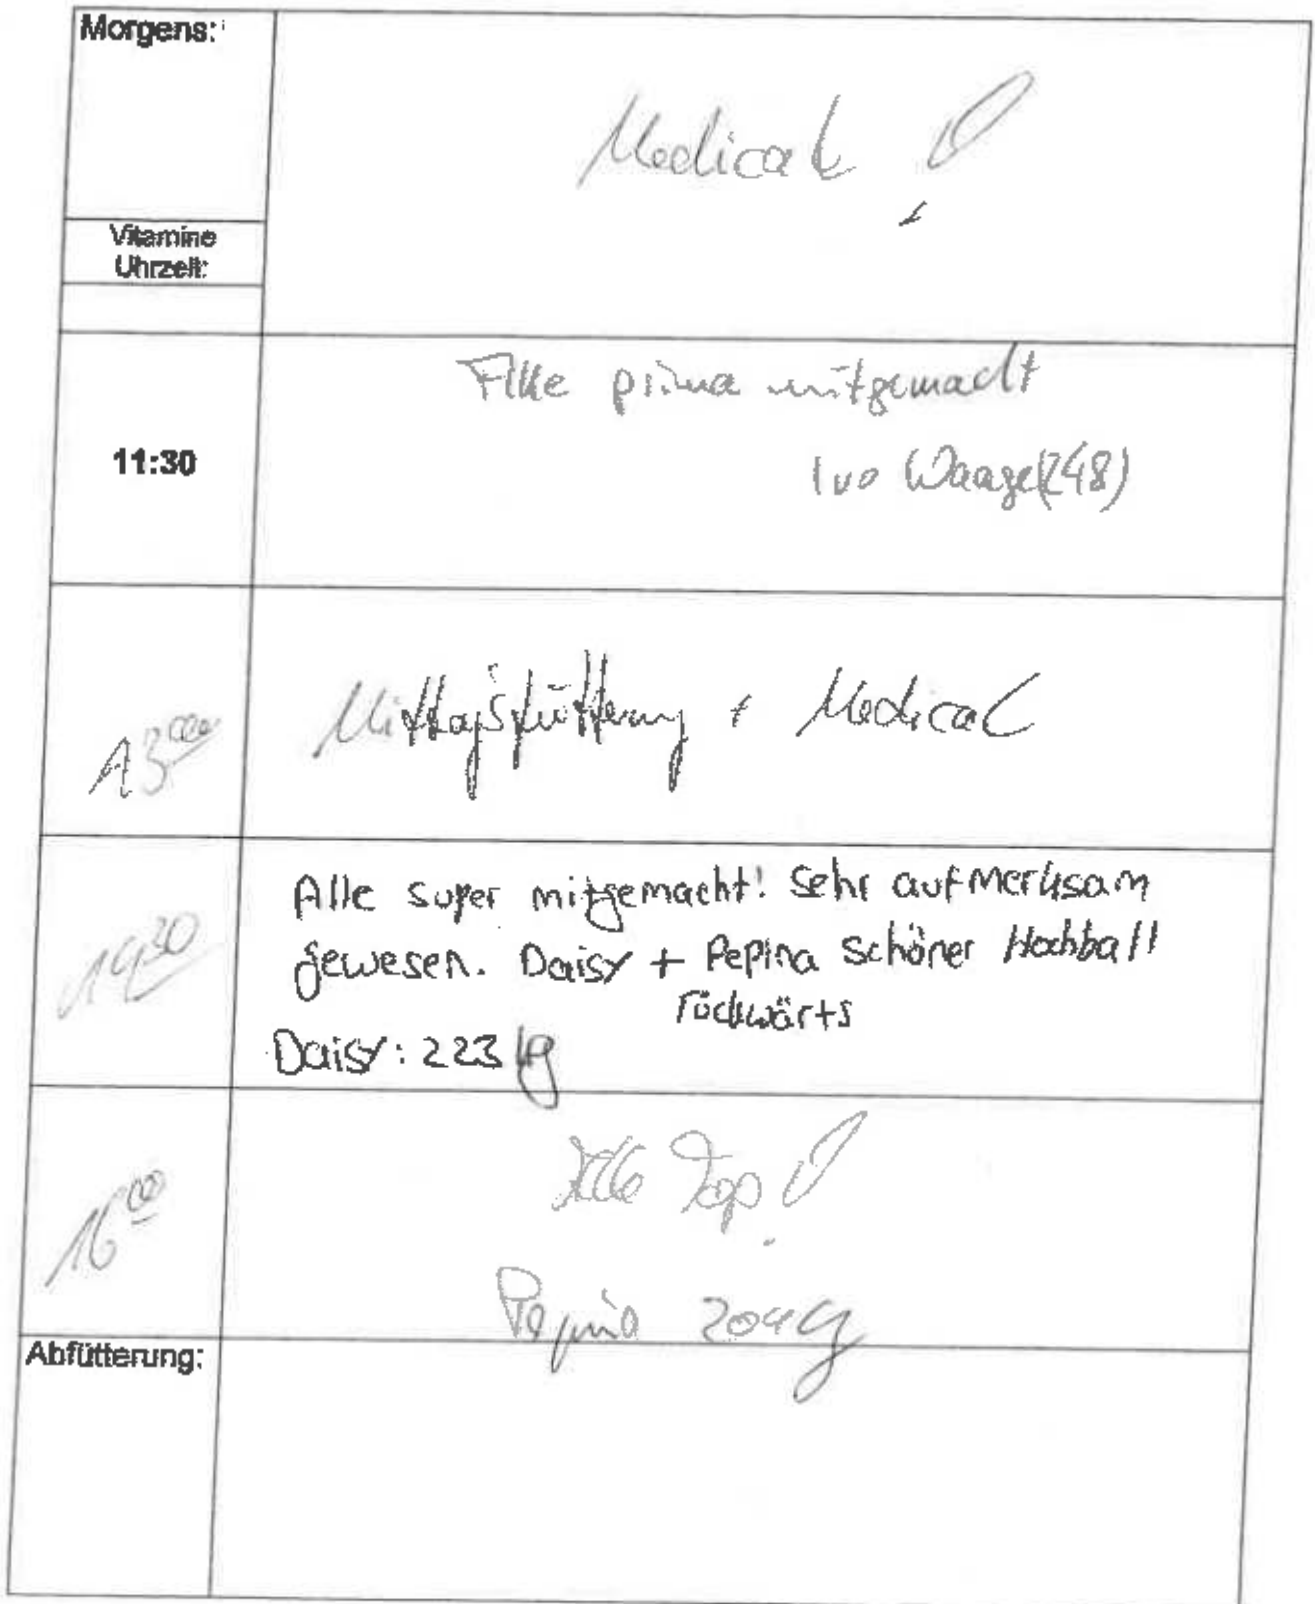 Morgens:
Medical !
Vitamine
Uhrzeit:
11:30
Alle prima mitgemacht
Ivo Waage (248)
13 00
Mittagsfütterung + Medical
14 30
Alle super mitgemacht! Sehr aufmerksam
gewesen. Daisy + Pepina schöner Hochball
rückwärts
Daisy: 223 kg
16 00
Alle Top!
Pepina
Abfütterung: